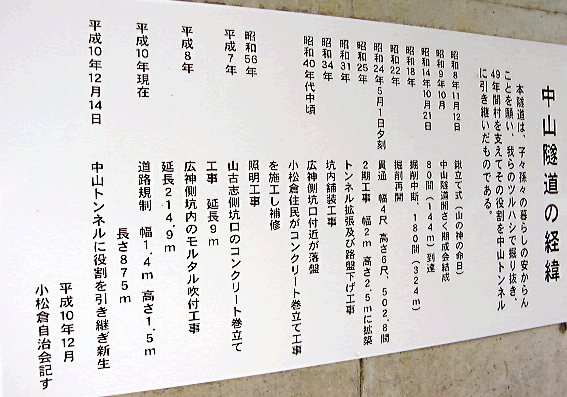 中山隧道の経緯
本隧道は、子々孫々の暮らしの安からん
ことを願い、我らのツルハシで掘り抜き、
49年間村を支えてその役割を中山トンネル
に引き継いだものである。
昭和8年11月12日 鍬立て式(山の神の命日)
昭和9年10月 中山隧道開さく期成会結成
昭和14年10月21日 80間(144m)到達
昭和18年 掘削中断、180間(324m)
昭和22年 掘削再開
昭和24年5月1日夕刻 貫通 幅4尺 高さ6尺、502.8間
昭和25年 2期工事 幅2m 高さ2.5mに拡築
昭和31年 トンネル拡張及び路盤下げ工事
昭和34年 坑内舗装工事
昭和40年代中頃 広神側坑口付近が落盤
小松倉住民がコンクリート巻立て工事
を施工し補修
昭和56年 照明工事
平成7年 山古志側坑口のコンクリート巻立て
工事 延長9m
平成8年 広神側坑内のモルタル吹付工事
延長249m
平成10年現在 道路規制 幅1.4m 高さ1.5m
長さ875m
平成10年12月14日 中山トンネルに役割を引き継ぎ新生
平成10年12月
小松倉自治会記す